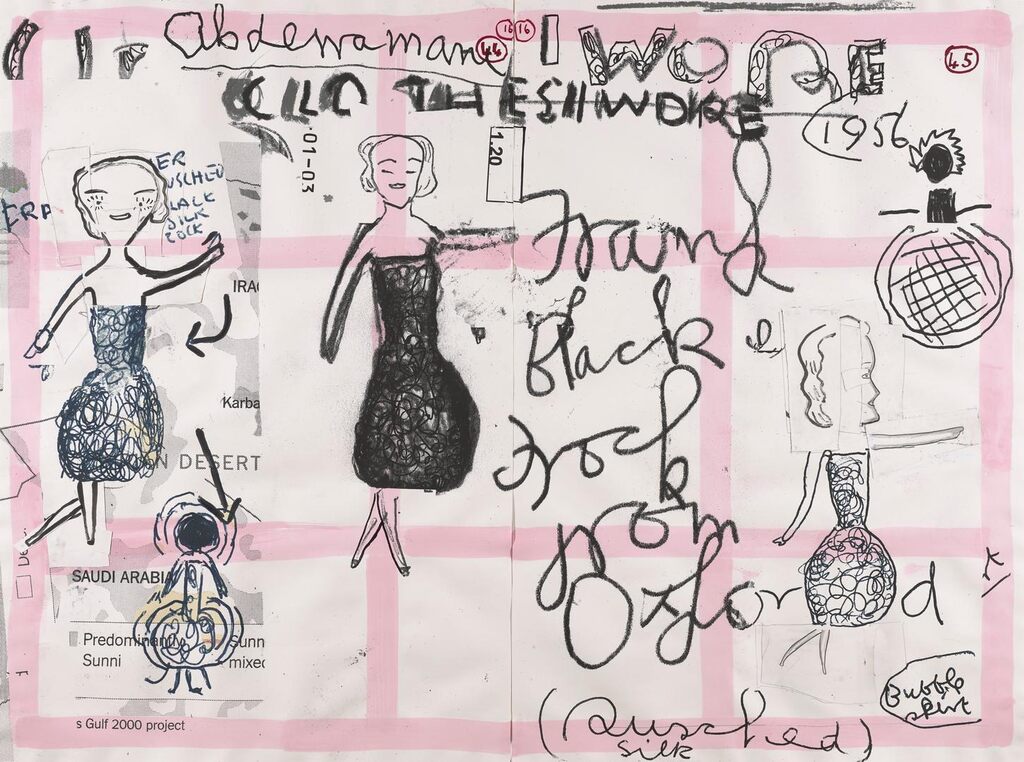 abdewamane
44
16 16
I WORE
45
CLOTHES I WORE
1956
01-03
1.20
ER
USCHED
LACK
SILK
ROCK
ERA
Frank
Black
frock
from
Oxford
IRA
Karba
N DESERT
SAUDI ARABIA
Predominantly
Sunni
Sunn
mixed
s Gulf 2000 project
(Rusched)
silk
Bubble
skirt